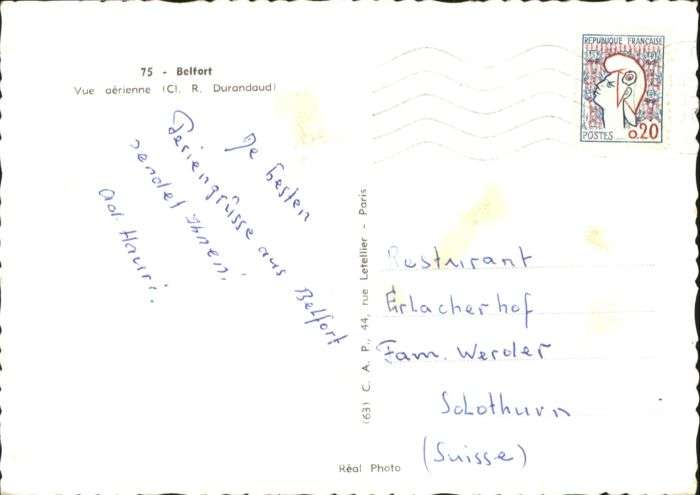 75 - Belfort
Vue aérienne (Cl. R. Durandaud)
Die besten
Feriengrüsse aus Belfort
sendet Ihnen:
Ad. Hauri.
RÉPUBLIQUE FRANÇAISE
POSTES 0,20
(63) C. A. P., 44, rue Letellier - Paris
Resturant
Erlacherhof
Fam. Werder
Solothurn
(Suisse)
Réal Photo